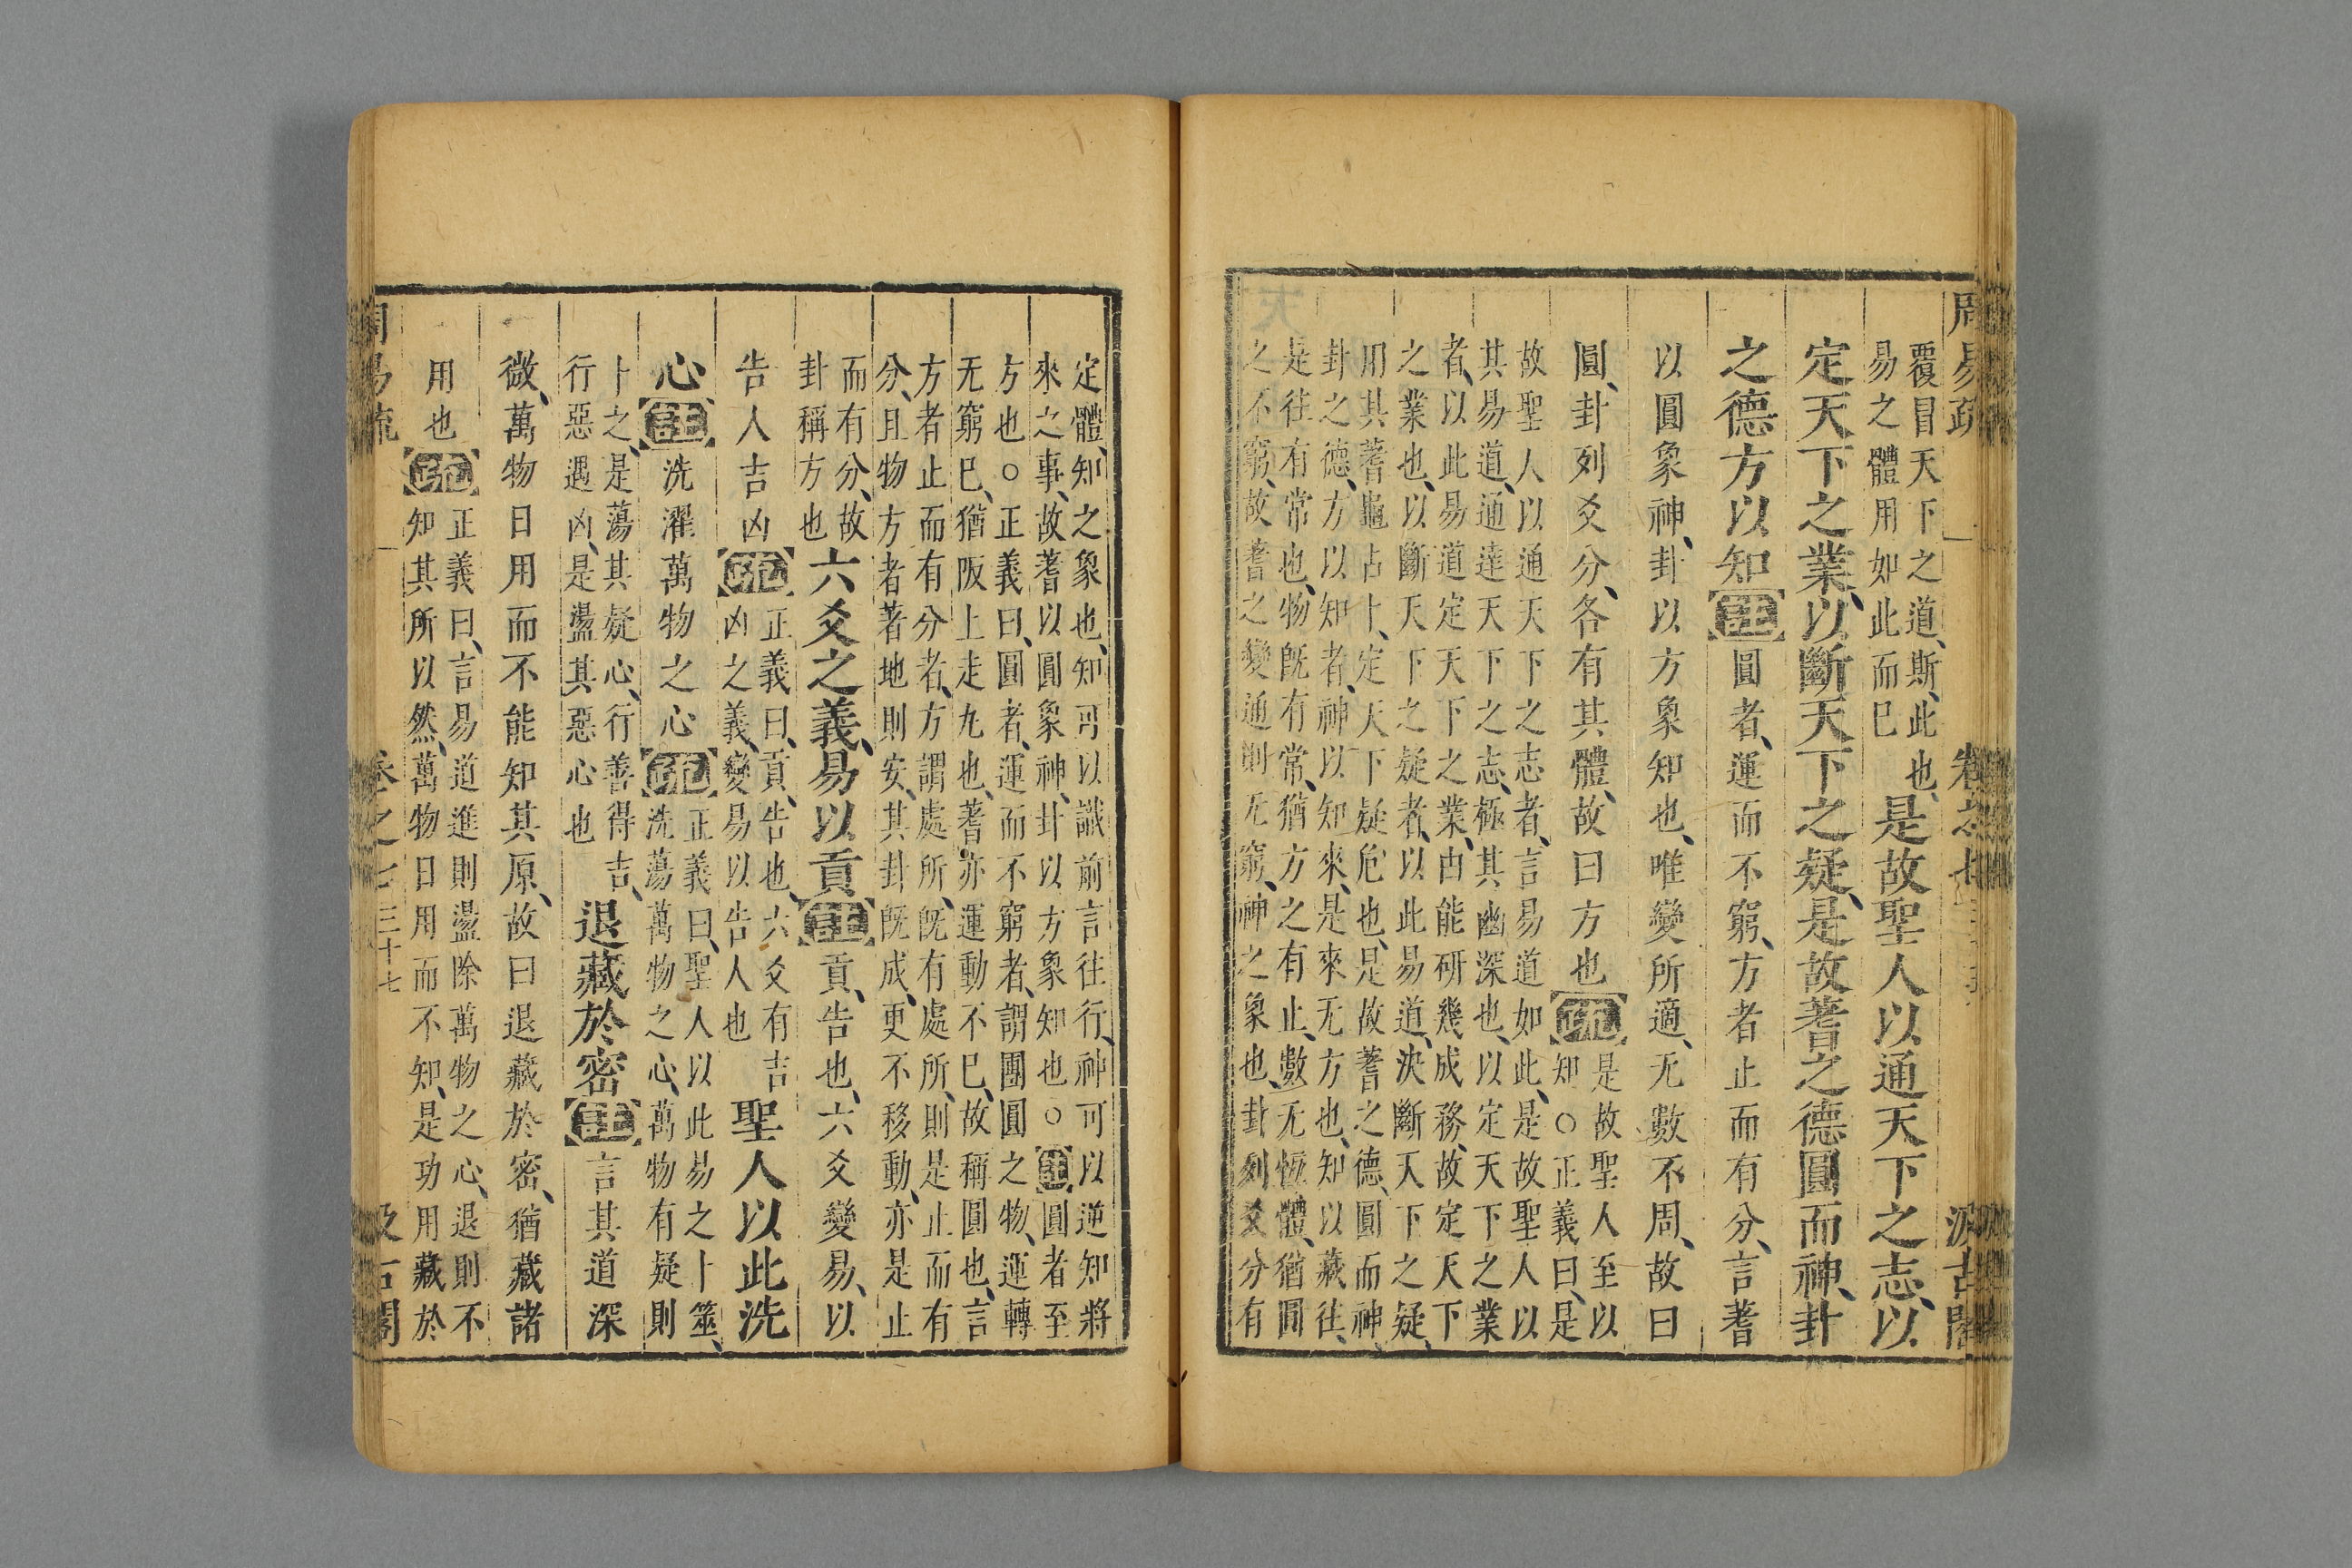 周易疏 卷之七 汲古閣
覆冒天下之道斯此也
易之體用如此而已
是故聖人以通天下之志以
定天下之業以斷天下之疑是故蓍之德圓而神卦
之德方以知
註
圓者運而不窮方者止而有分言蓍
以圓象神卦以方象知也唯變所適无數不周故曰
圓卦列爻分各有其體故曰方也
疏
是故聖人至以
知○正義曰是
故聖人以通天下之志者言易道如此是故聖人以
其易道通達天下之志極其幽深也以定天下之業
者以此易道定天下之業由能研幾成務故定天下
之業也以斷天下之疑者以此易道決斷天下之疑
用其蓍龜占卜定天下疑危也是故蓍之德圓而神
卦之德方以知者神以知來是來无方也知以藏往
是往有常也物旣有常猶方之有止數无恆體猶圓
之不窮故蓍之變通則无窮神之象也卦列爻分有
定體知之象也知可以識前言往行神可以逆知將
來之事故蓍以圓象神卦以方象知也○註圓者至
方也○正義曰圓者運而不窮者謂團圓之物運轉
无窮已猶阪上走丸也蓍亦運動不已故稱圓也言
方者止而有分者方謂處所旣有處所則是止而有
分且物方者著地則安其卦旣成更不移動亦是止
而有分故
卦稱方也
六爻之義易以貢
註
貢告也六爻變易以
告人吉凶
疏
正義曰貢告也六爻有吉
凶之義變易以告人也
聖人以此洗
心
註
洗濯萬物之心
疏
正義曰聖人以此易之卜筮
洗蕩萬物之心萬物有疑則
卜之是蕩其疑心行善得吉
行惡遇凶是盪其惡心也
退藏於密
註
言其道深
微萬物日用而不能知其原故曰退藏於密猶藏諸
用也
疏
正義曰言易道進則盪除萬物之心退則不
知其所以然萬物日用而不知是功用藏於
周易疏 卷之七 三十七 汲古閣